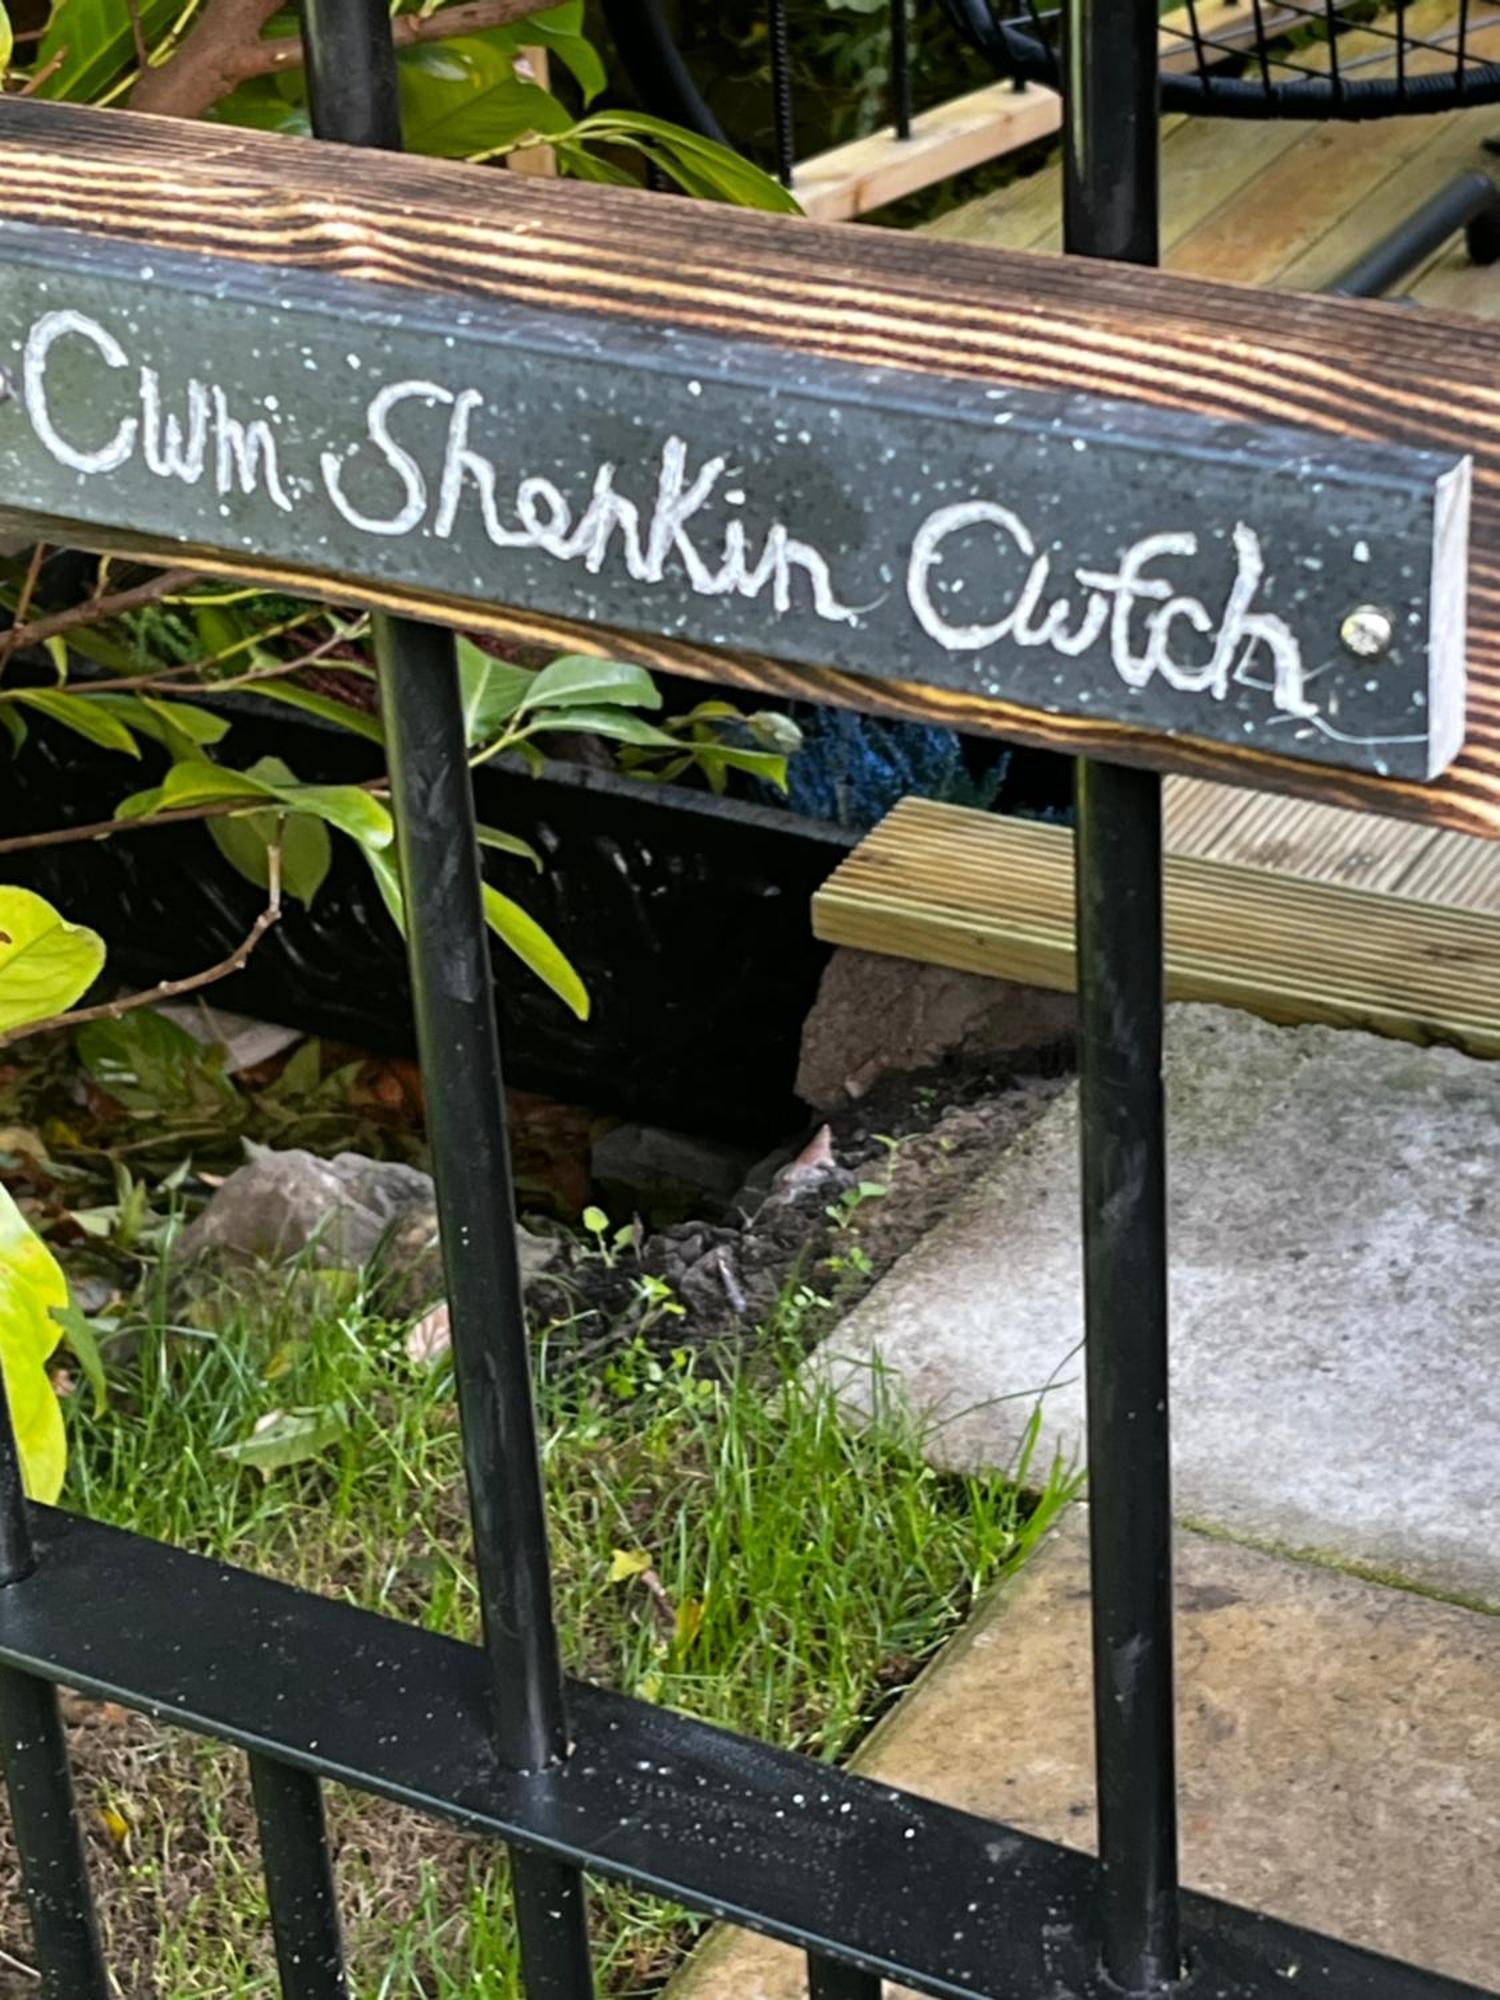 Cwm Sherkin Cwtch